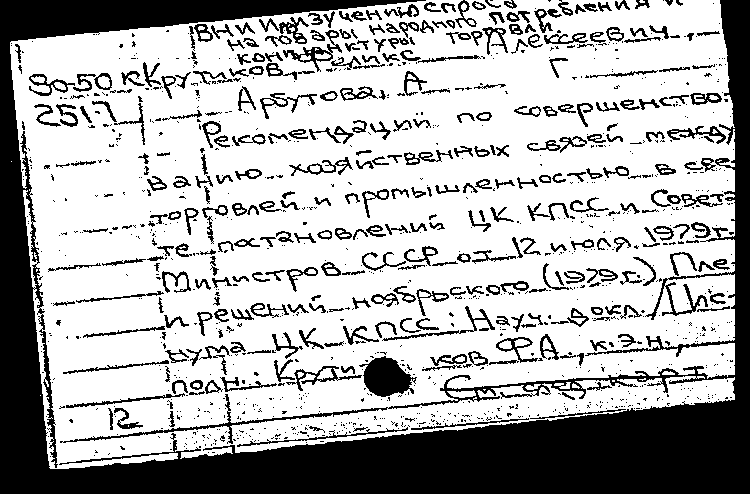 ВНИИ по изучению спроса
на товары народного потребления и
конъюнктуры торговли
80-50 к Крутиков, Феликс Алексеевич,
2517 Арбутова, А Г
Рекомендаций по совершенство-
ванию хозяйственных связей между
торговлей и промышленностью в све-
те постановлений ЦК КПСС и Совета
Министров СССР от 12 июля 1979г.
и решений ноябрьского (1979г.) Пле-
нума ЦК КПСС: Науч. докл. /[Ис-
полн.: Крутиков Ф.А., к.э.н.,
См. след. карт
12